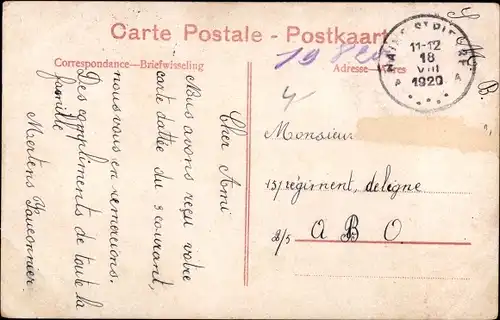 Carte Postale - Postkaart
Correspondance—Briefwisseling
Adresse—Adres
HAINE-ST-PIERRE
11-12
18
VIII
1920
A A
S. M. B.
Cher Ami
Nous avons reçu votre
carte dattée du 3 courant,
nous vous en remercions.
Des compliments de toute la
famille
Mertens
Monsieur
13/régiment, deligne
2/5 A B O